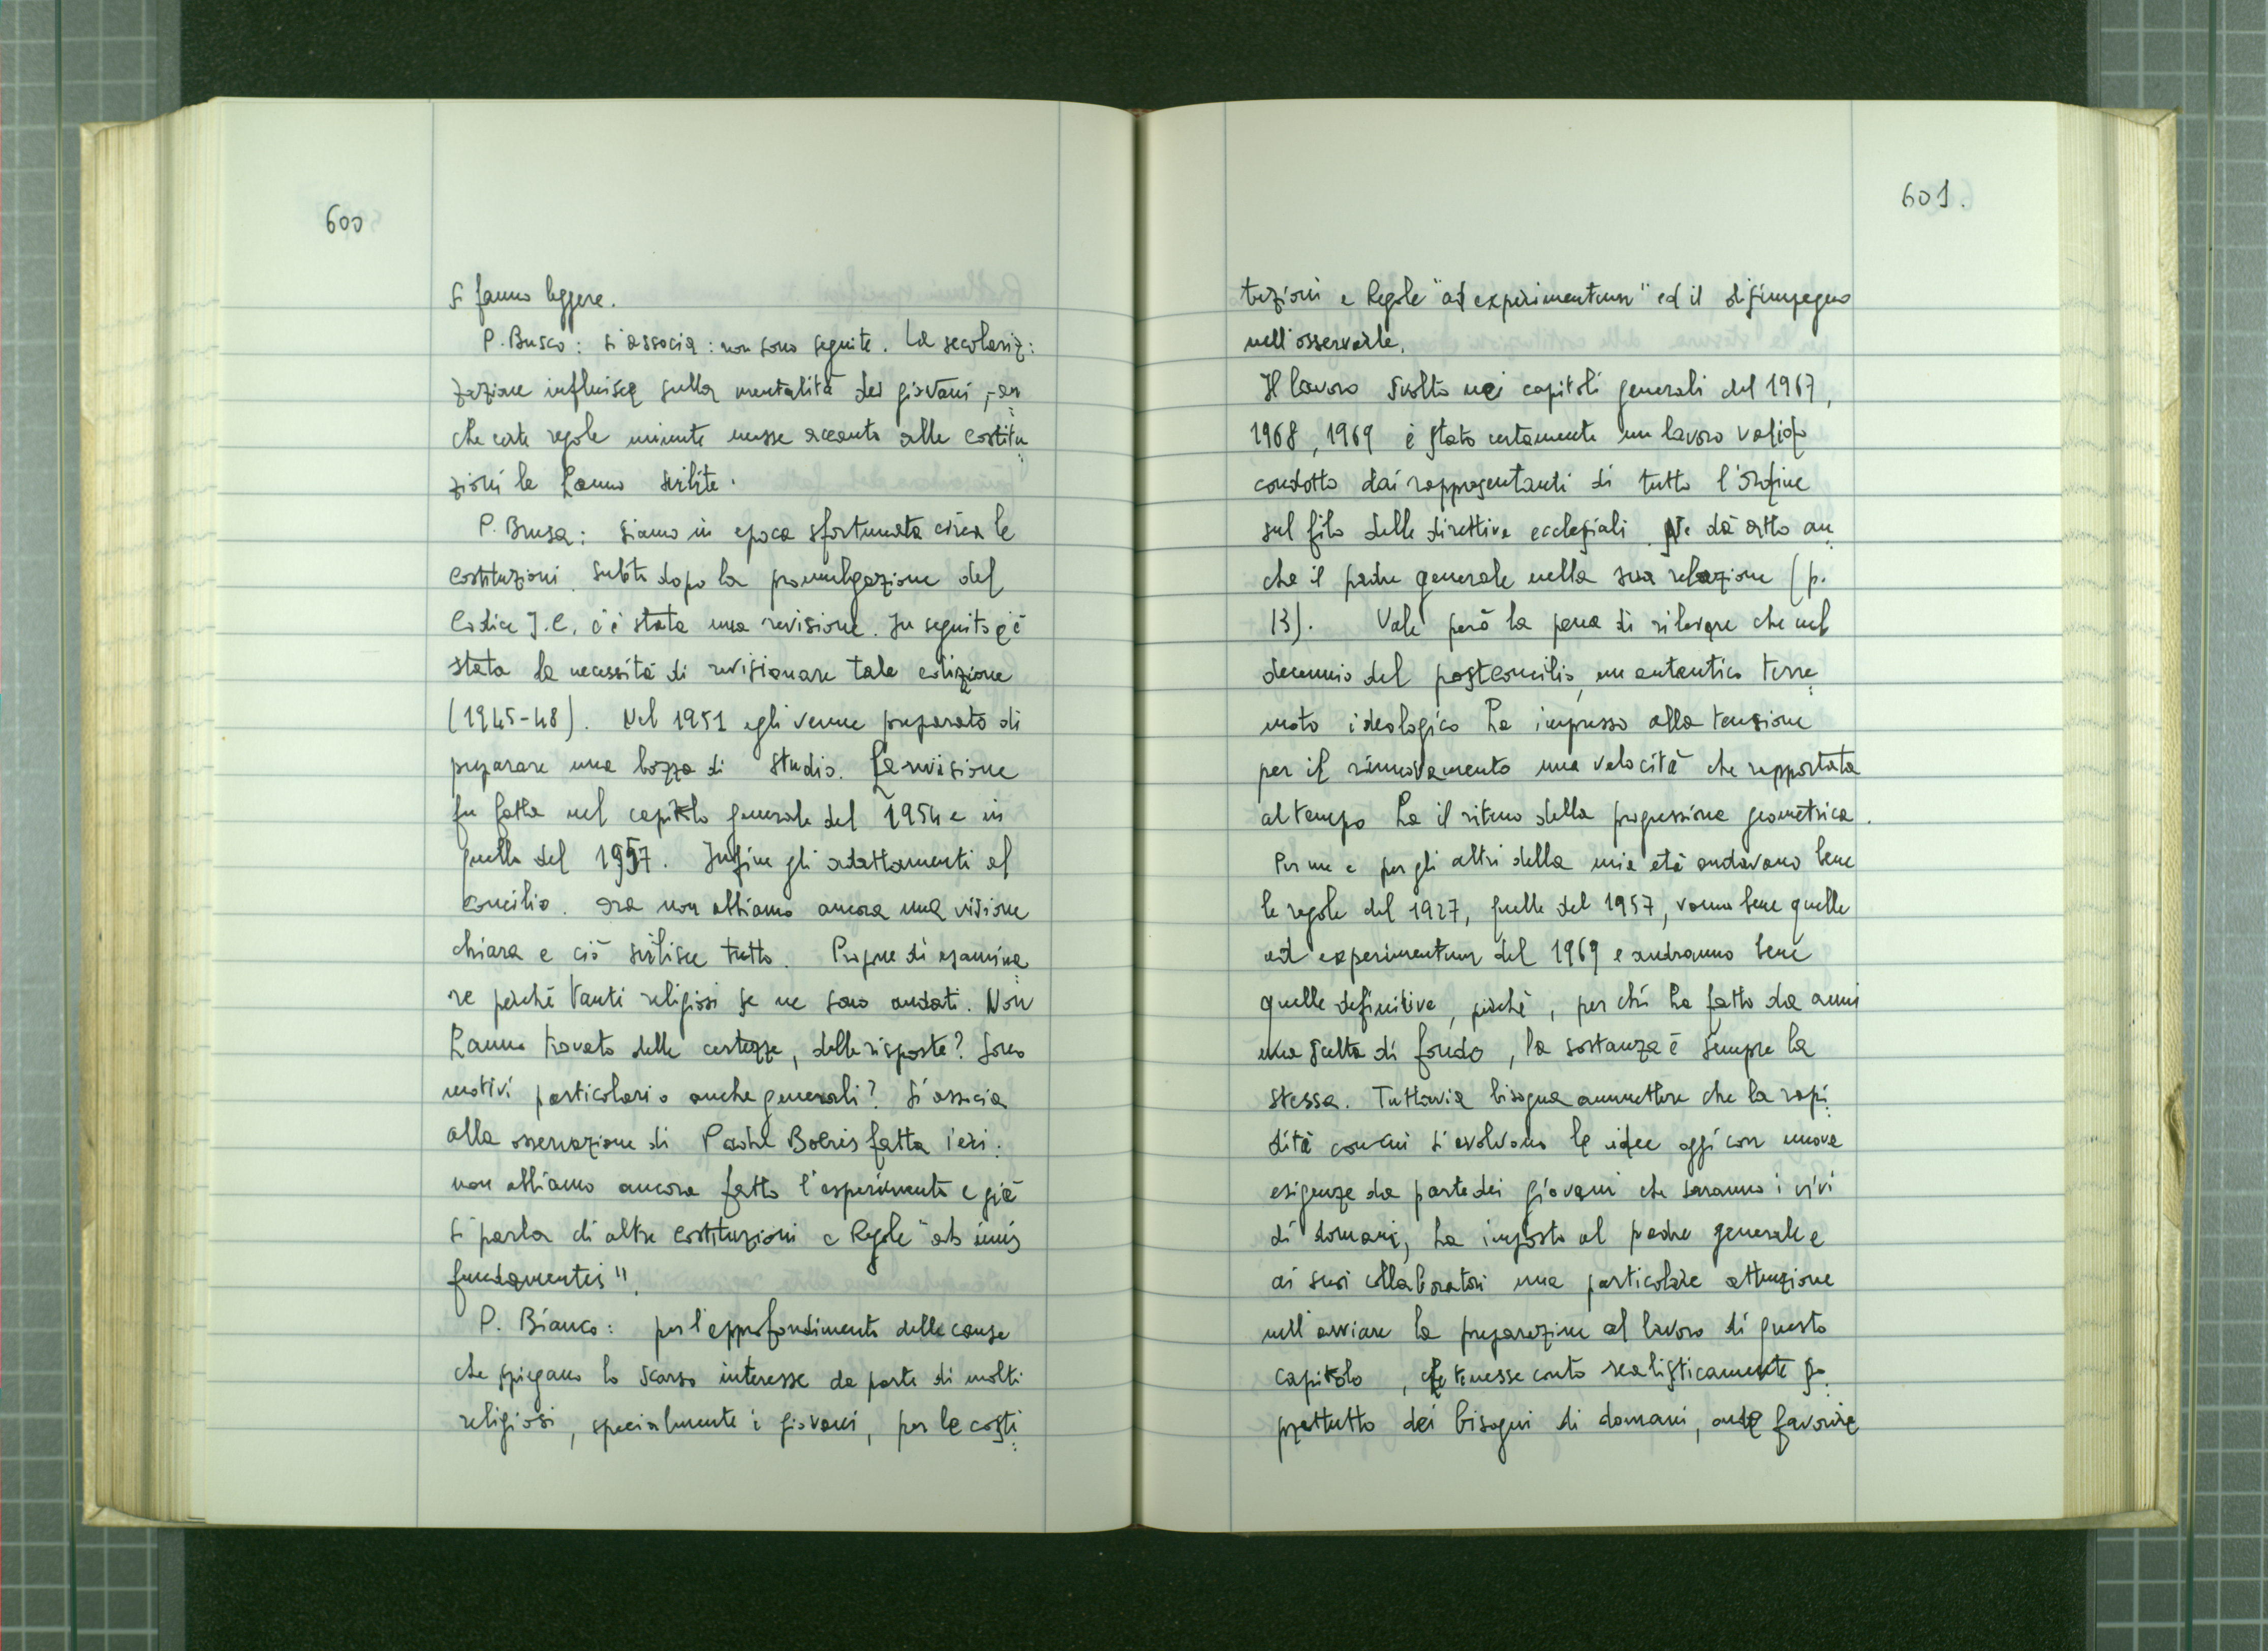 600
si fanno leggere.
P. Busco: si associa: non sono seguite. La secolariz:
zazione influisce sulla mentalità dei giovani, an
che certe regole minute messe accanto alle costitu
zioni le hanno svilite.
P. Brusa: siamo in epoca sfortunata circa le
costituzioni. Subito dopo la promulgazione del
Codice J.C. c'è stata una revisione. In seguito c'è
stata la necessità di revisionare tale edizione
(1945-48). Nel 1951 egli venne preparato di
preparare una bozza di studio. La revisione
fu fatta nel capitolo generale del 1954 e in
quello del 1957. Infine gli adattamenti al
concilio. Ora non abbiamo ancora una visione
chiara e ciò svilisce tutto. Propone di esamina
re perchè tanti religiosi se ne sono andati. Non
hanno trovato delle certezze, delle risposte? Sono
motivi particolari o anche generali? Si associa
alla osservazione di Padre Boeris fatta ieri:
non abbiamo ancora fatto l'esperimento e già
si parla di altre costituzioni e Regole "ab imis
fundamentis".
P. Bianco: per l'approfondimento delle cause
che spiegano lo scarso interesse da parte di molti
religiosi, specialmente i giovani, per le costi
601.
tuzioni e Regole "ad experimentum" ed il disimpegno
nell'osservarle.
Il lavoro svolto nei capitoli generali del 1967,
1968, 1969 è stato certamente un lavoro valido
condotto dai rappresentanti di tutto l'Ordine
sul filo delle direttive ecclesiali. Ne dà atto an
che il padre generale nella sua relazione (p.
13). Vale però la pena di rilevare che nel
decennio del postconcilio, un autentico terre
moto ideologico ha impresso alla tensione
per il rinnovamento una velocità che rapportata
al tempo ha il ritmo della progressione geometrica.
Per me e per gli altri della mia età andavano bene
le regole del 1927, quelle del 1957, vanno bene quelle
ad experimentum del 1969 e andranno bene
quelle definitive, poichè, per chi ha fatto da anni
una scelta di fondo, la sostanza è sempre la
stessa. Tuttavia bisogna ammettere che la rapi
dità con cui si evolvono le idee oggi con nuove
esigenze da parte dei giovani che saranno i vivi
di domani, ha imposto al padre generale e
ai suoi collaboratori una particolare attenzione
nell'avviare la preparazione al lavoro di questo
capitolo, che tenesse conto realisticamente so
prattutto dei bisogni di domani, onde favorire